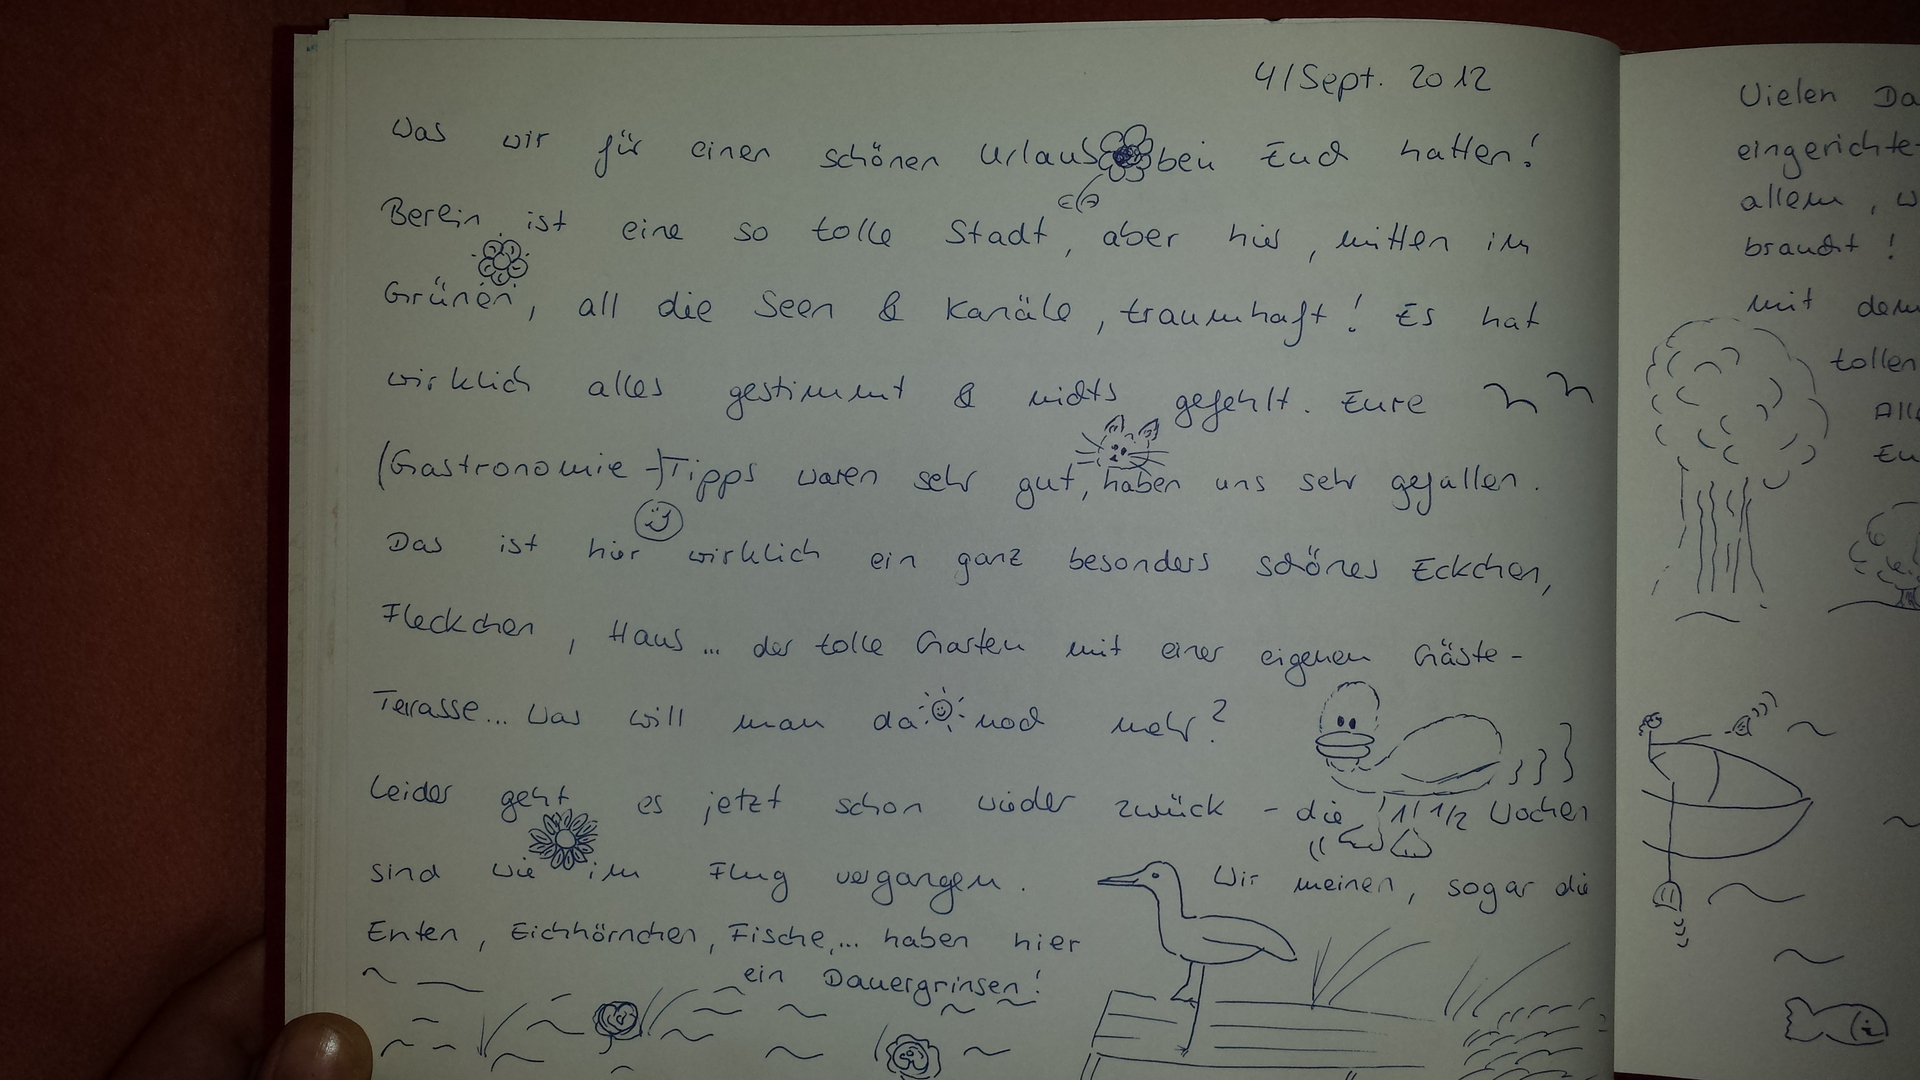 4/Sept. 2012
Was wir für einen schönen Urlaub bei Euch hatten!
Berlin ist eine so tolle Stadt, aber hier, mitten im
Grünen, all die Seen & Kanäle, traumhaft! Es hat
wirklich alles gestimmt & nichts gefehlt. Eure
(Gastronomie-)Tipps waren sehr gut, haben uns sehr gefallen.
Das ist hier wirklich ein ganz besonders schönes Eckchen,
Fleckchen, Haus... der tolle Garten mit einer eigenen Gäste-
Terasse... Was will man da noch mehr?
Leider geht es jetzt schon wieder zurück - die 1 1/2 Wochen
sind wie im Flug vergangen. Wir meinen, sogar die
Enten, Eichhörnchen, Fische,... haben hier
ein Dauergrinsen!
Vielen Da
eingerichte
allem, w
braucht!
mit dem
tollen
All
Eu